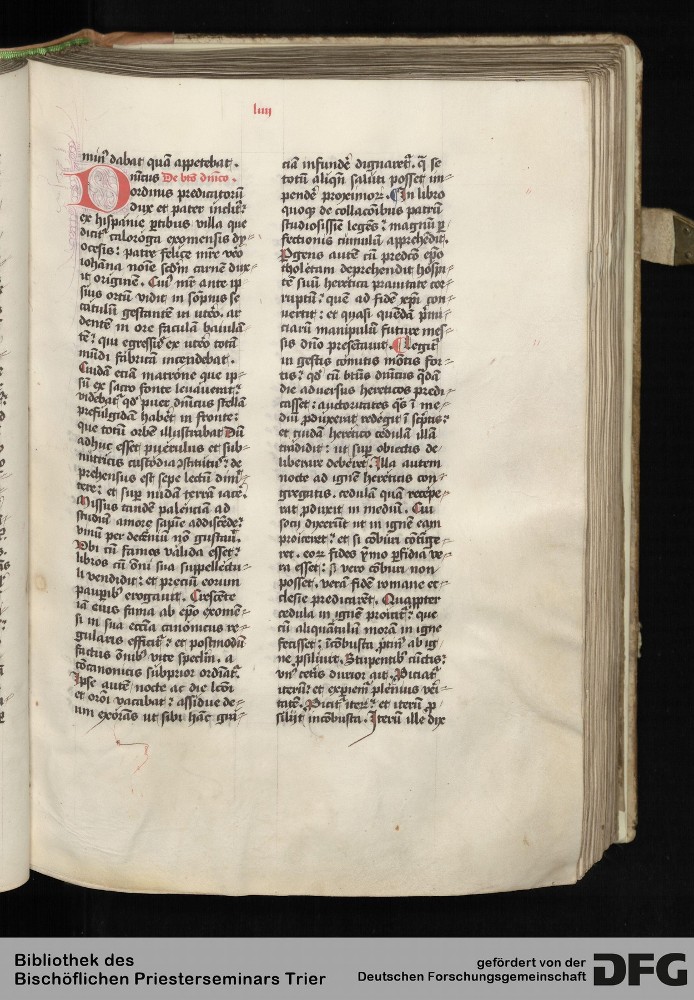 liiii
min⁹ dabat quā appetebat.
Dn̄icus De btō dn̄ico.
ordinis predicatorū
dux et pater inclit⁹
ex hispanie ꝑtibus villa que
dicit᷑ calaroga exomensis dy-
ocesis: patre felice mr̄e vero
iohāna noīe scd̄m carnē dux-
it originē. Cui⁹ mr̄ ante ip
sius ortū vidit in sōpnis se
catulū gestantē in utero. ar
dentē in ore faculā baiulā
te: qui egressus ex utero totā
mūdi fabricā incendebat.
Cuidā etiā matrone que ip-
sū ex sacro fonte leuauerat:
videbat᷑ qd̓ puer dn̄icus stellā
prefulgidā habēt in fronte:
que totū orbē illustrabat Dū
adhuc esset puerulus et sub
nutricis custodia ꝯstitut⁹: de
prehensus est sepe lectū dimi-
tere: et suꝑ nudā terrā iacē.
Missus tandē palenciā ad
studiū amore sapiē addiscēde:
vinū per decēniū nō gustauī.
Vbi cū fames valida esset:
libros cū ōni sua suppellecti-
li vendidit: et preciū eorum
pauꝑib⁹ erogauit. Crescēte
iā eius fama ab ep̄o exomē-
si in sua ecc̄ia canonicus re-
gularis efficit᷑: et postmodū
factus ōnib⁹ vite speclm̄. a
cōcanonicis subprior ordiat᷑.
Ipse autē nocte ac die lcōi
et orōi vacabat: assidue de-
um exorās ut sibi hāc gra-
ciā infundē dignaret᷑. q̄ se
totū aliqn̄ saluti posset im-
pendē proximor᷑. In libro
quoqꝫ de collacōibus patrū
studiosissīe legēs: magnū ꝑ
fectionis cumulū apprehēdit.
Pgens autē cū predcō ep̄o
tholetam deprehendit hospi-
tē suū heretica prauitate cor-
ruptū: quē ad fidē xp̄i con-
vertit: et quasi quēdā p̄mi-
ciarū manipulū future mes-
sis dn̄o presētauit. Legit᷑
in gestis comitis mōtis for-
tis: qd̓ cū btūs dn̄icus q̄dā
die adversus hereticos predi-
casset: auctoritates q̄s ī me-
diū ꝓduxerat redegit ī sc̄ptis:
et cuidā heretico cedulā illā
tradidit: ut suꝑ obiectis de-
liberare deberet. Illa autem
nocte ad ignē hereticis con-
gregatis. cedulā quā recepe-
rat ꝓduxit in mediū. Cui
socij dixerūt ut in ignē eam
proiceret: et si cōburi cōtige-
ret. eor᷑ fides ymo ꝑfidia ve-
ra esset: si vero cōburi non
posset. verā fidē romane ec-
clesie predicarēt. Quappter
cedula in ignē proicit᷑: que
cū aliquātulū morā in igne
fecisset: incōbusta ꝓtin⁹ ab ig-
ne ꝓsiliuit. Stupentib⁹ cūctis:
vn⁹ cetis durior ait. Piciat᷑
iterū: et exꝑiem̄ plenius vēi
tatē. Picit᷑ iter᷑: et iterū ꝓ-
silijt incōbusta. Iterū ille dix
Bibliothek des
Bischöflichen Priesterseminars Trier
gefördert von der
Deutschen Forschungsgemeinschaft
DFG